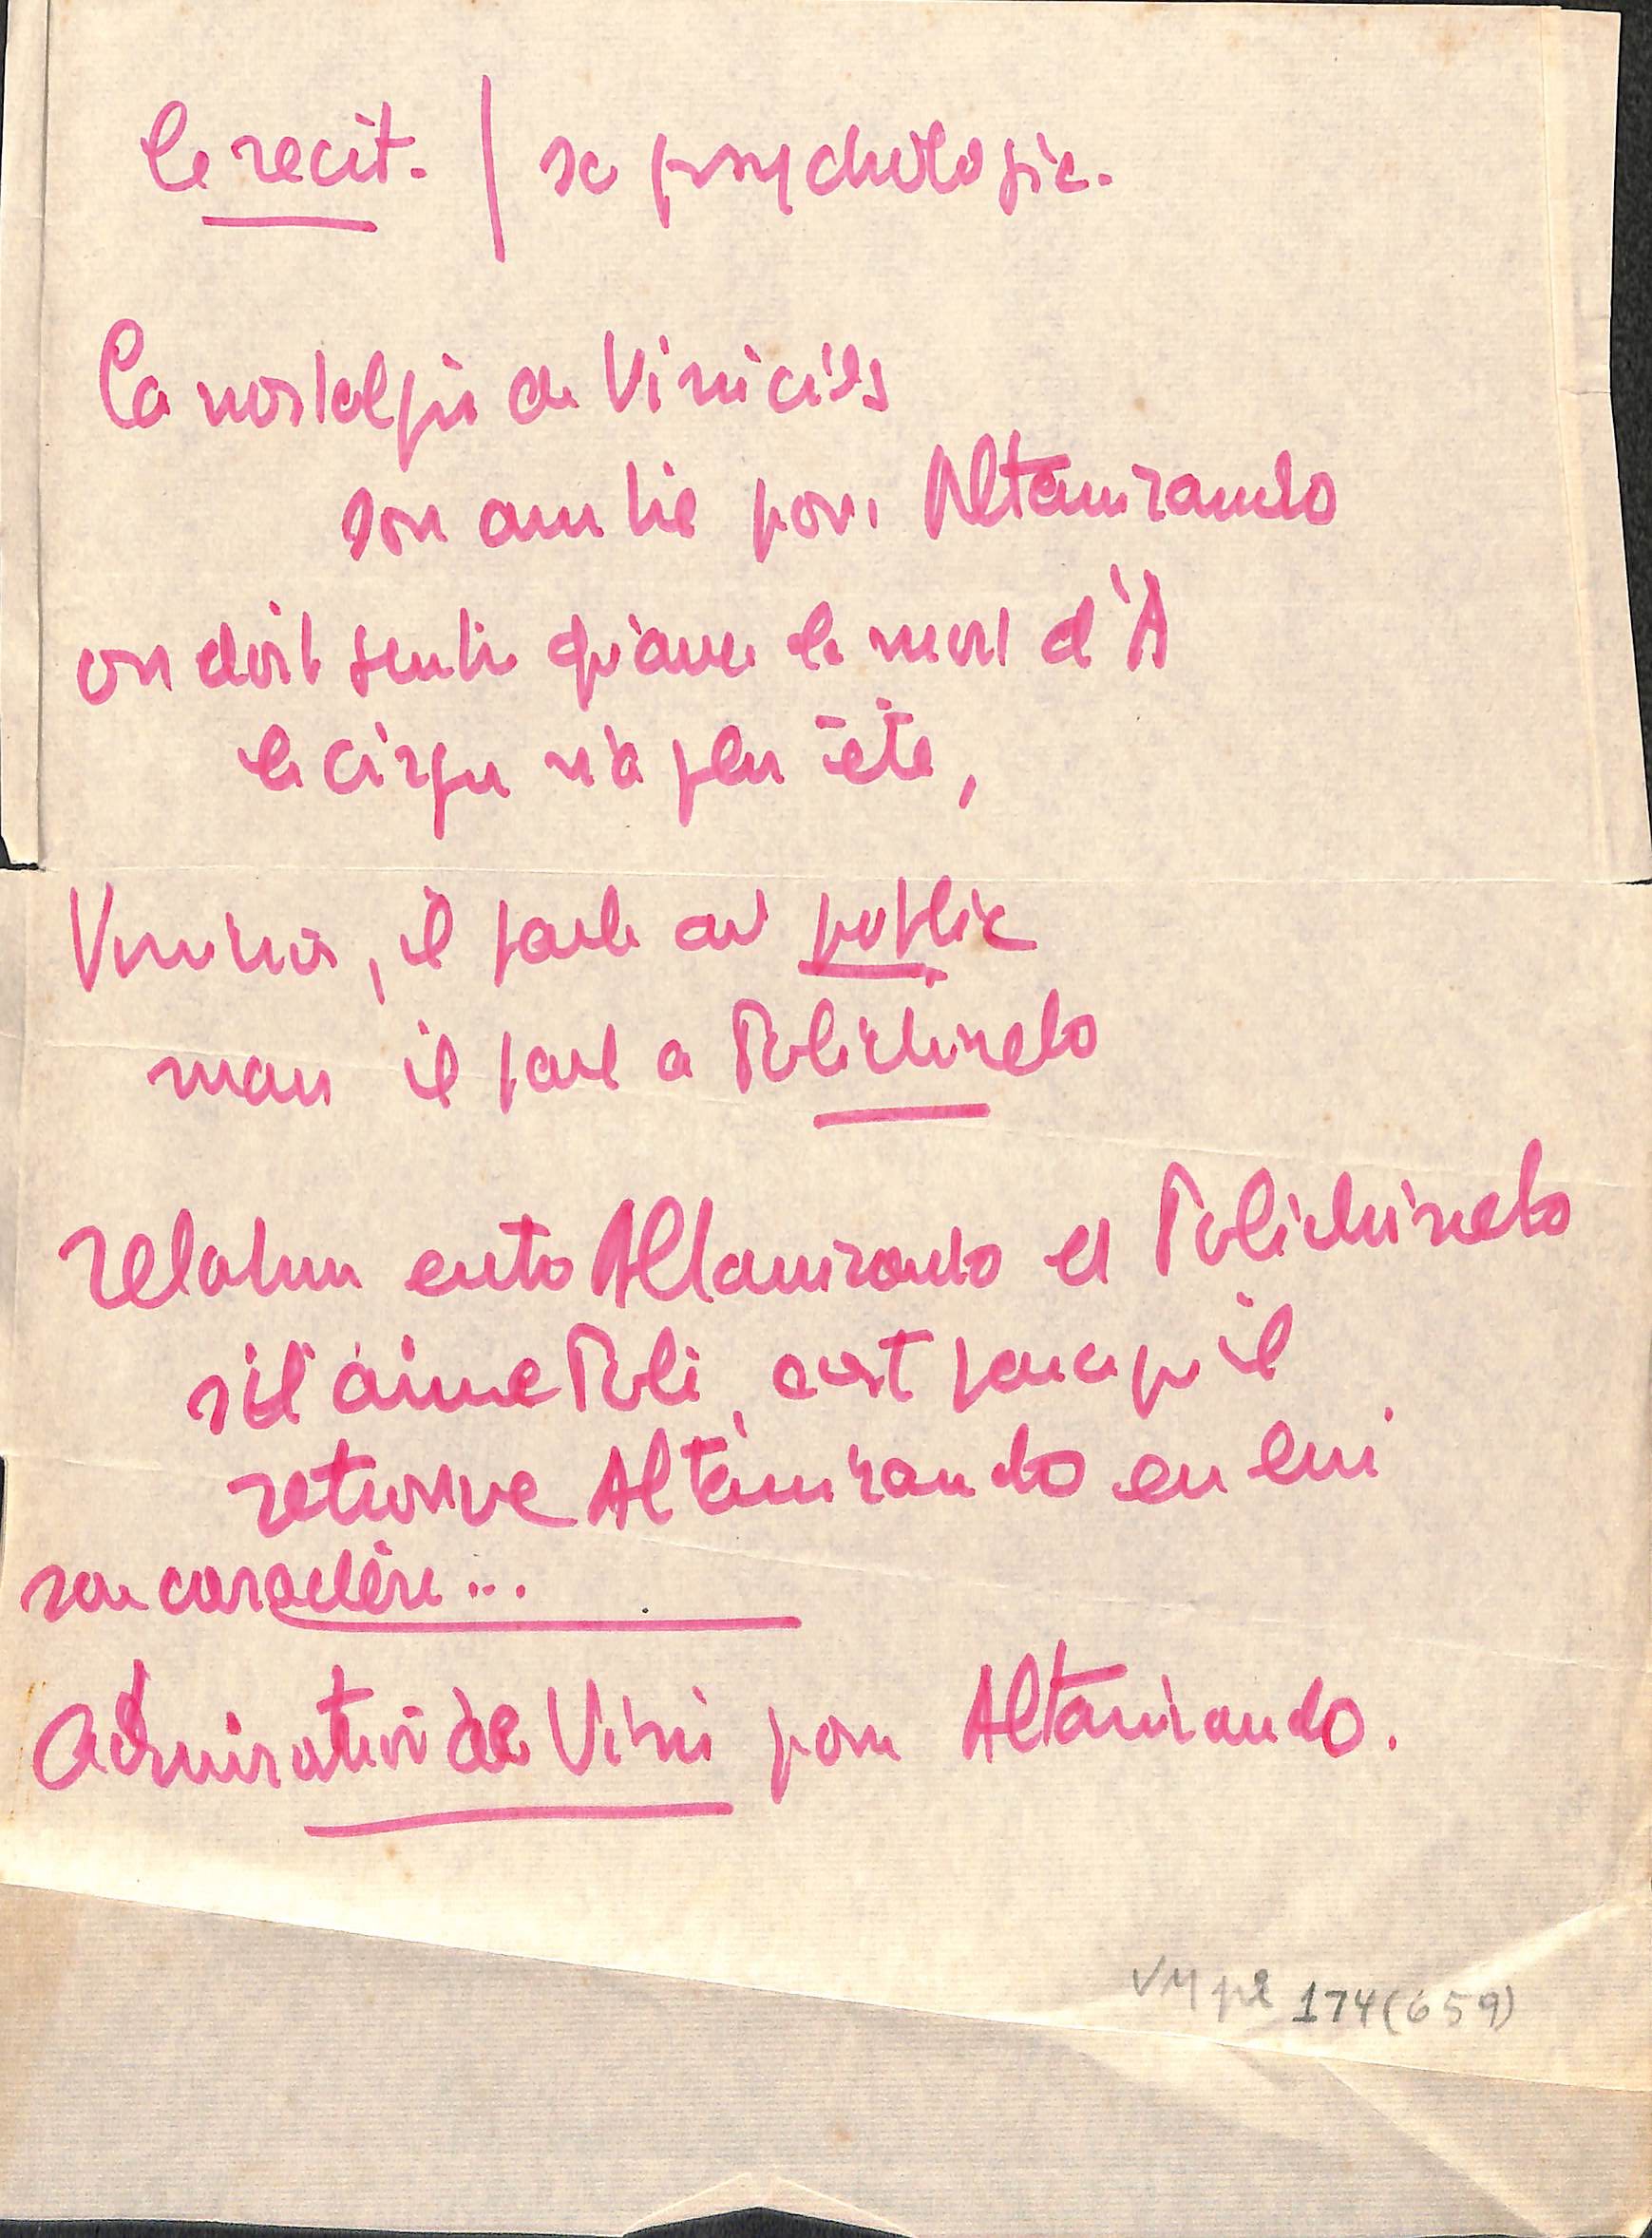 le recit. / sa psychologie.
La nostalgie de Vinicius
son amitié pour Altamirando
on doit sentir qu'avec la mort d'A
le cirque n'a plus été,
Vinicius, il parle au public
mais il parle a Polichinelo
relation entre Altamirando et Polichinelo
s'il aime Poli, c'est parce qu'il
retrouve Altamirando en lui
son caractère...
Admiration de Vini pour Altamirando.
VM pl 174 (659)